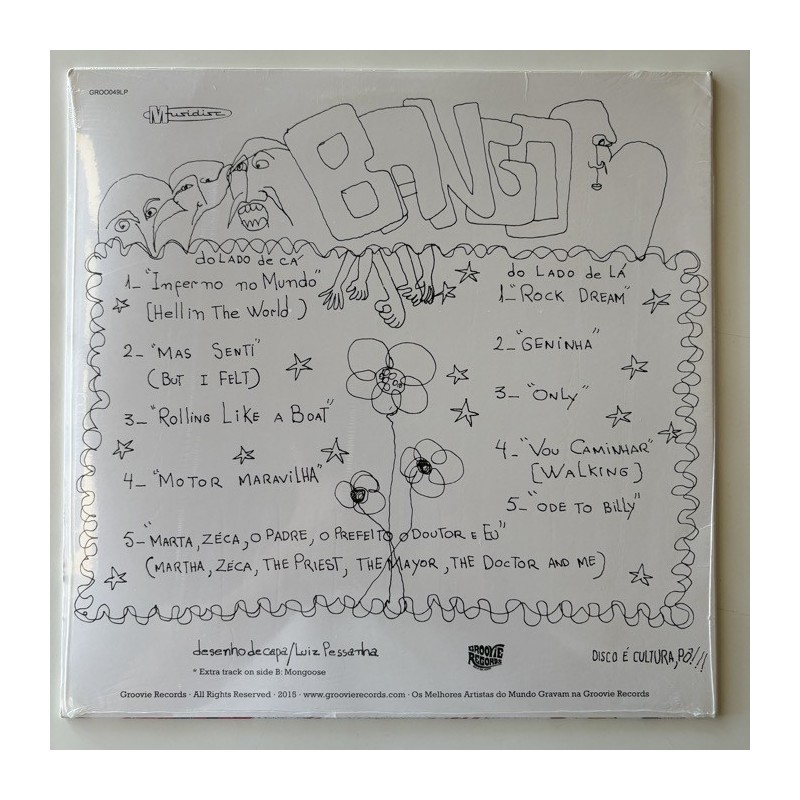 GROO049LP
Musidisc
BANGO
do LADO de CÁ
1_ "Inferno no Mundo"
(Hell in The World)
2_ "MAS SENTI"
(BUT I FELT)
3_ "ROLLING LIKE A BOAT"
4_ "MOTOR MARAVILHA"
5_ "MARTA, ZÉCA, O PADRE, O PREFEITO O DOUTOR E EU"
(MARTHA, ZÉCA, THE PRIEST, THE MAYOR, THE DOCTOR AND ME)
do LADO de LÁ
1_ "ROCK DREAM"
2_ "GENINHA"
3_ "ONLY"
4_ "VOU CAMINHAR"
[WALKING]
5_ "ODE TO BILLY"
desenho de capa/Luiz Pessanha
* Extra track on side B: Mongoose
GROOVIE
RECORDS
DISCO É CULTURA, PÔ!!!
Groovie Records · All Rights Reserved · 2015 · www.groovierecords.com · Os Melhores Artistas do Mundo Gravam na Groovie Records